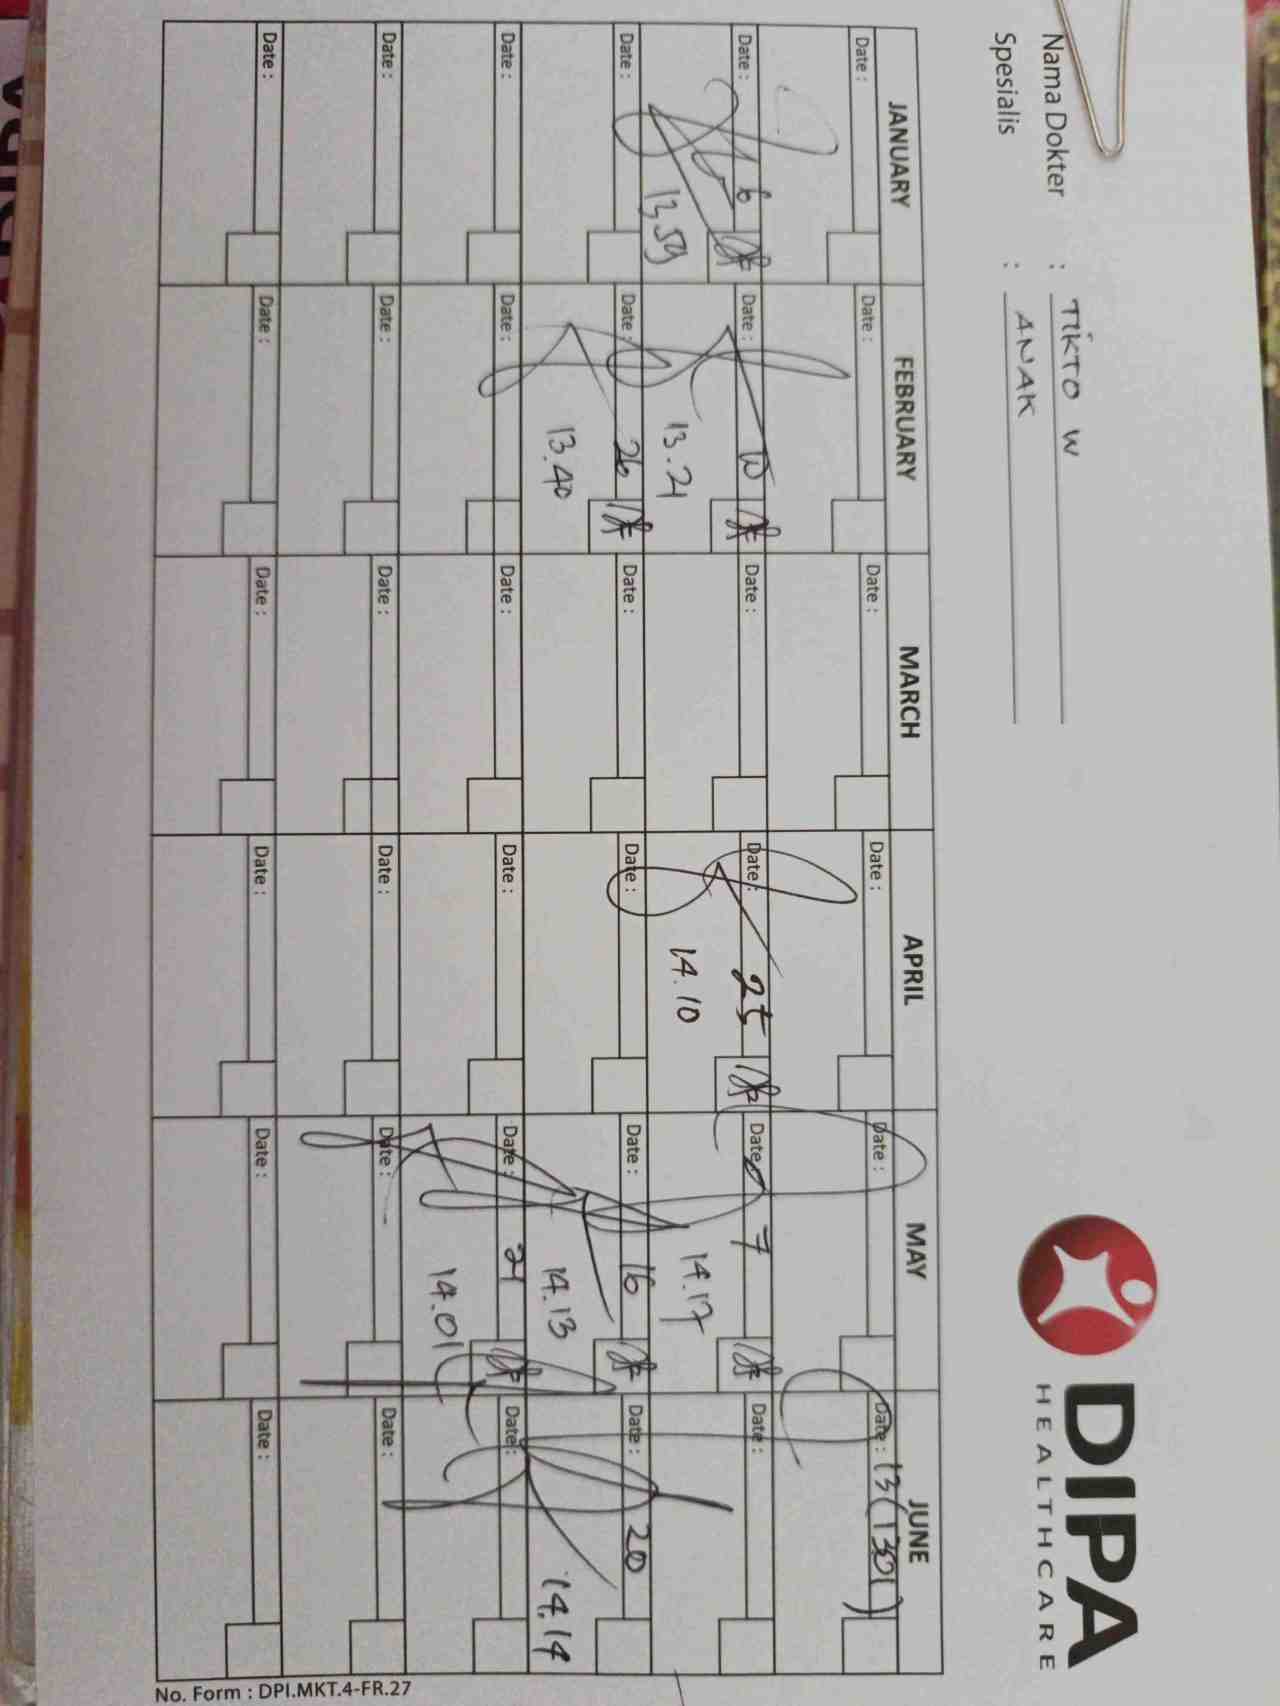 DIPA
HEALTHCARE
Nama Dokter : TIKTO W
Spesialis : ANAK
JANUARY FEBRUARY MARCH APRIL MAY JUNE
Date : Date : Date : Date : Date : Date : 13 (1301)
Date : 6 Date : Date : Date : 25 Date : 7 Date :
13 59 13.21 14.10 14.17
Date : Date : 26 Date : Date : Date : 16 Date : 20
13.40 14.13 14.14
Date : Date : Date : Date : Date : 21 Date :
14.01
Date : Date : Date : Date : Date : Date :
Date : Date : Date : Date : Date : Date :
No. Form : DPI.MKT.4-FR.27